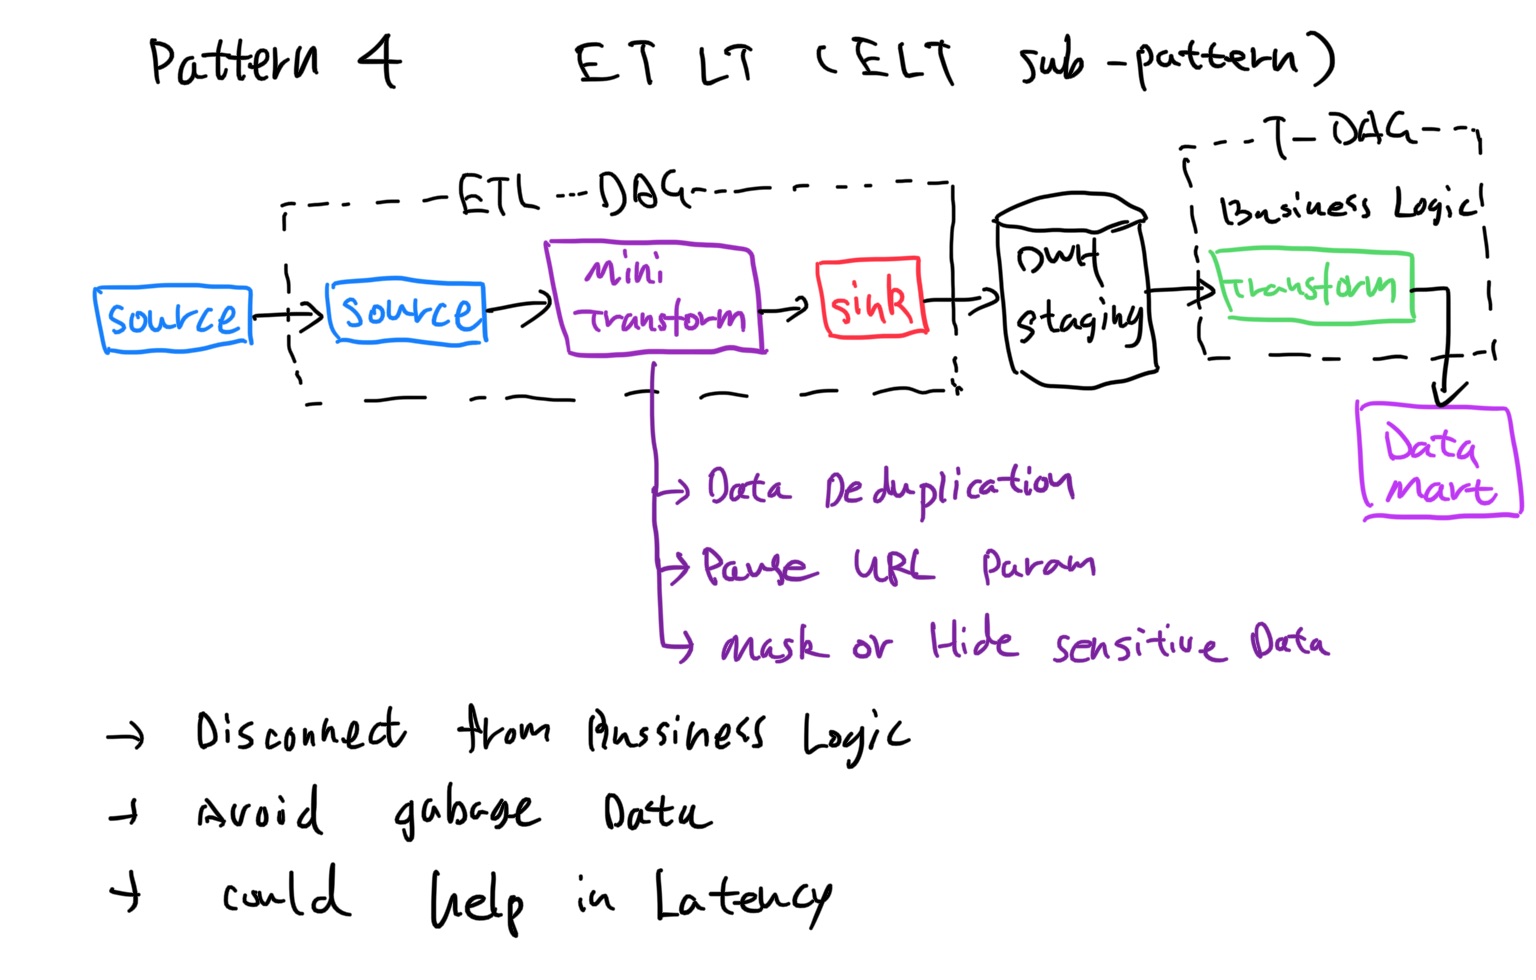 Pattern 4 ETLT (ELT sub-pattern)
T-DAG
ETL DAG
Business Logic
source
source
Mini
Transform
sink
DWH
staging
Transform
Data
Mart
Data Deduplication
Pause URL Param
Mask or Hide sensitive Data
Disconnect from Bussiness Logic
Avoid gabage Data
could help in Latency